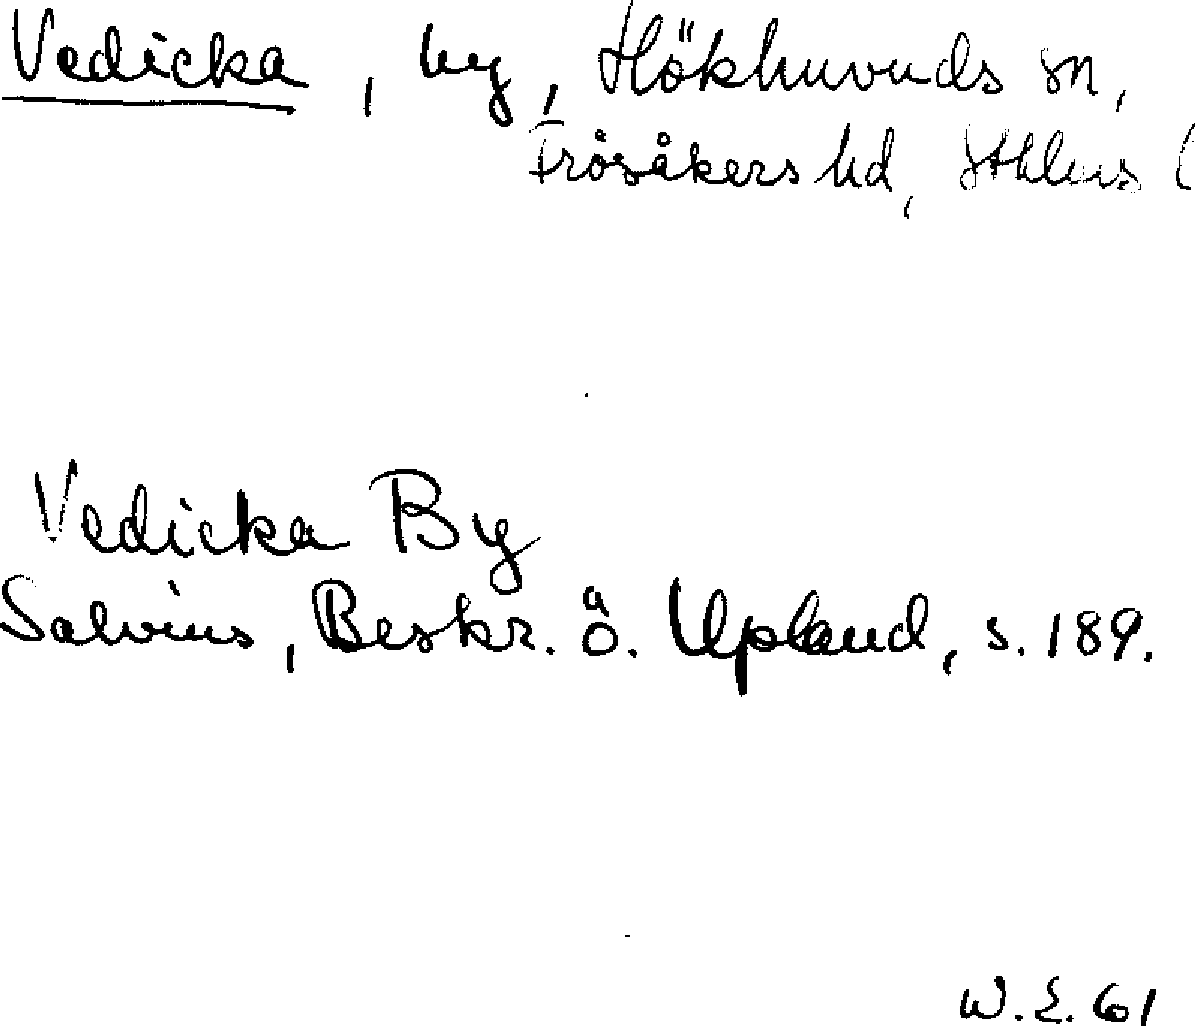 Vedicka, by, Hökhuvuds sn,
Frösåkers hd, Sthlms l
Vedicka By
Salvius, Beskr. ö. Upland, s. 189.
W.E. 61